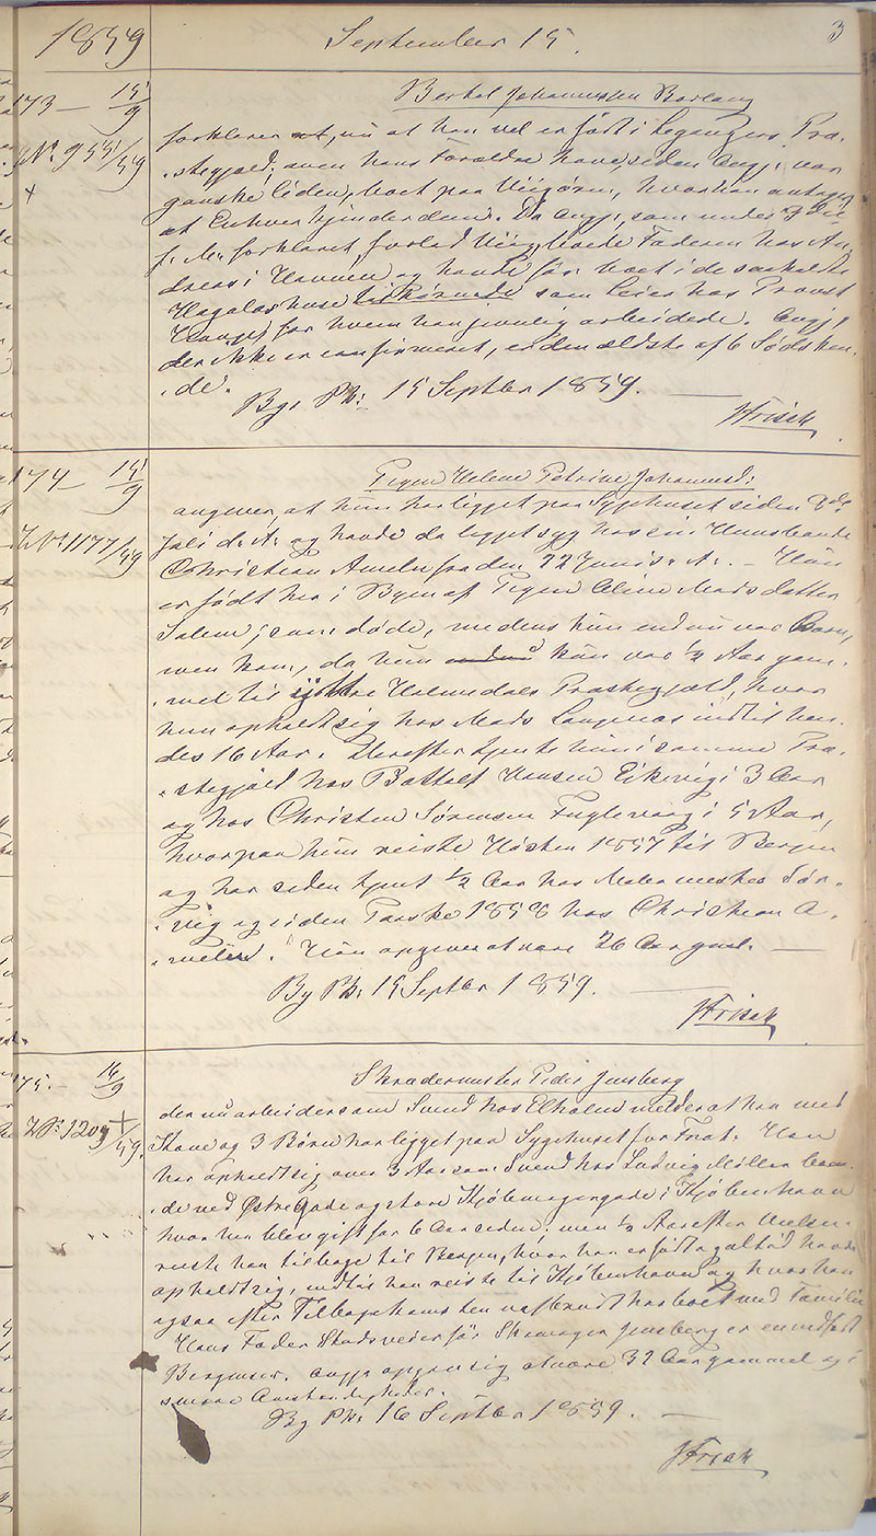 1859
September 15.
3
173 — 15/9
No. 955/59
+
Berthel Johannessen Barlaug
forklarer at, nu at han vel er født i Leganger Præ-
stegjæld, men hans Forældre have, siden Angj. var
ganske liden, boet paa Viigøren, hvorhen antages
at Enhver kjender dem. Da Angj., som under
f. M. forklaret, forlod Viig, boede Faderen hos An-
dreas i Havnen og havde før boet i de saakaldte
Hagalos huse som Leier hos Provst
for hvem han jevnlig arbeidede. Angj.,
der ikke er confirmeret, er den ældste af 6 Sødsken-
de.
By. Pk. 15 Septbr 1859.
JFrisak
174 — 15/9
No. 1177/59
Pigen Helene Petrine Johannesd:
angiver, at hun har ligget paa Sygehuset siden 2de
Juli d. A. og havde da ligget syg hos sin Huusbonde
Christian Ameln fra den 22 Juni s. A. — Hun
er født her i Byen af Pigen Oline Madsdatter
Salem, som døde, medens hun endnu var Barn,
men kom, da hun kun var 1/2 Aar gam-
mel til yttre Holmedals Præstegjæld, hvor
hun opholdt sig hos Mads Langenæs indtil hen-
des 16 Aar. Derefter tjente hun i samme Præ-
stegjæld hos Bottolf Hansen Eikevig i 3 Aar
og hos Christen Sørensen Fuglevaag i 5 Aar,
hvorpaa hun reiste Høsten 1857 til Bergen
og har siden tjent 1/2 Aar hos Malermester Sør-
vig og siden Paaske 1858 hos Christian A-
meln. Hun opgiver at være 26 Aar gml. —
By Pk. 15 Septbr 1859.
JFrisak
175. — 16/9
No. 1209/59.
+
Skrædermester Peder Jensberg
der nu arbeider som Svend hos Elholm melder at han med
Kone og 3 Børn har ligget paa Sygehuset for Fnat. Han
har opholdt sig over 3 Aar som Svend hos Ludvig Møller boen-
de ved Østregade og store Kjøbmagergade i Kjøbenhavn
hvor han blev gift for 6 Aar siden; men 1/2 Aar efter Vielsen
reiste han tilbage til Bergen, hvor han er født og altid havde
opholdt sig, indtil han reiste til Kjøbenhavn og hvor han
ogsaa efter Tilbagekomsten uafbrudt har boet med Familie
Hans Fader Stadsveier før Skomager Jensberg er en indfødt
Bergenser. Angj. opgiver sig at være 32 Aar gammel og i
smaae Omstændigheder.
By Pk. 16 Septbr 1859. —
JFrisak